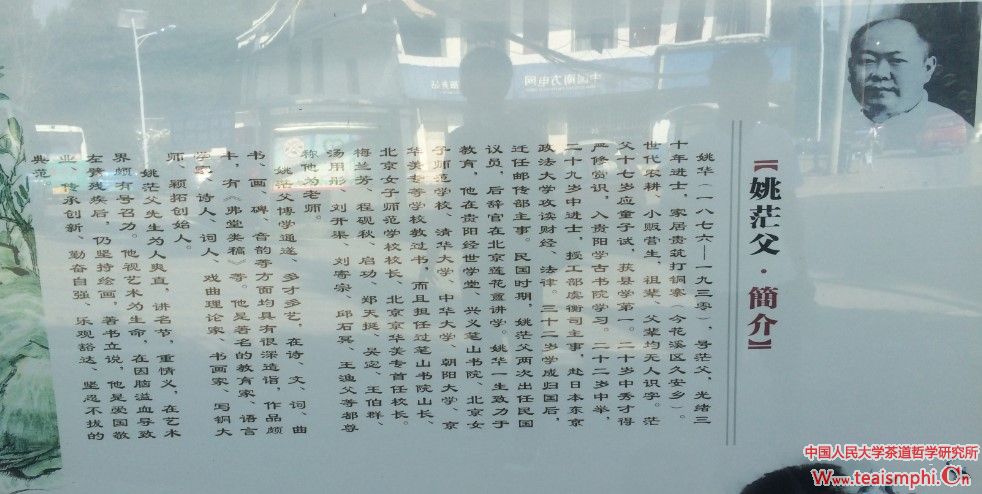 【姚茫父·簡介】
姚华（一八七六——一九三零），号茫父，光绪三
十年进士，家居贵筑打铜寨（今花溪区久安乡）。
世代农耕、小贩营生，祖辈、父辈均无人识字。茫
父十七岁应童子试，获县学第一。二十岁中秀才得
严修赏识，入贵阳学古书院学习。二十二岁中举，
二十九岁中进士，授工部虞衡司主事，赴日本东京
政法大学攻读财经、法律。三十二岁学成归国后，
迁任邮传部主事。民国时期，姚茫父两次出任民国
议员，后辞官在北京莲花寺讲学。姚华一生致力于
教育，他在贵阳经世学堂、兴义笔山书院、北京女
子师范学校、清华大学、中华大学、朝阳大学、京
华美专等学校教过书，而且担任过笔山书院山长、
北京女子师范学校校长、北京京华美专首任校长。
梅兰芳、程砚秋、启功、郑天挺、吴宓、王伯群、
汤用彤、刘开渠、刘寄宗、邱石冥、王渔父等都尊
称他为老师。
姚茫父博学通邃、多才多艺，在诗、文、词、曲
书、画、碑、音韵等方面均具有很深造诣，作品颇
丰，有《弗堂类稿》等。他是著名的教育家、语言
学家、诗人、词人、戏曲理论家、书画家、写铜大
师、颖拓创始人。
姚茫父先生为人爽直，讲名节，重情义，在艺术
界颇有号召力。他视艺术为生命，在因脑溢血导致
左臂残疾后，仍坚持绘画，著书立说，他是爱国敬
业、传承创新、勤奋自强、乐观豁达、坚忍不拔的
典范。
中国南方电网
中国人民大学茶道哲学研究所
Www.teaismphi.Cn